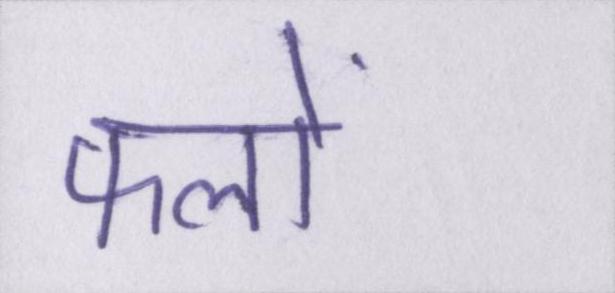 फलों